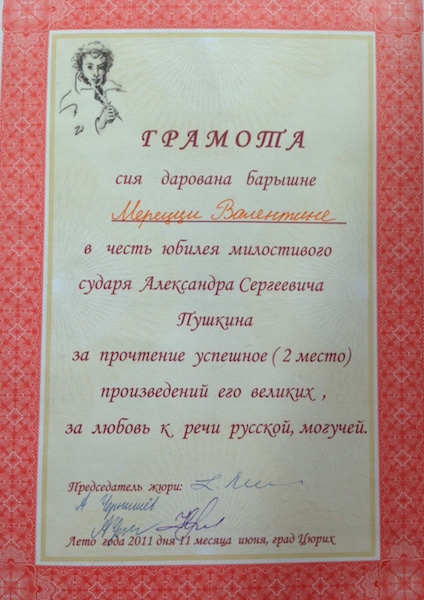 ГРАМОТА
сия дарована барышне
Мерецци Валентине
в честь юбилея милостивого
сударя Александра Сергеевича
Пушкина
за прочтение успешное ( 2 место)
произведений его великих ,
за любовь к речи русской, могучей.
Председатель жюри:
А Чернышёв
Лето года 2011 дня 11 месяца июня, град Цюрих